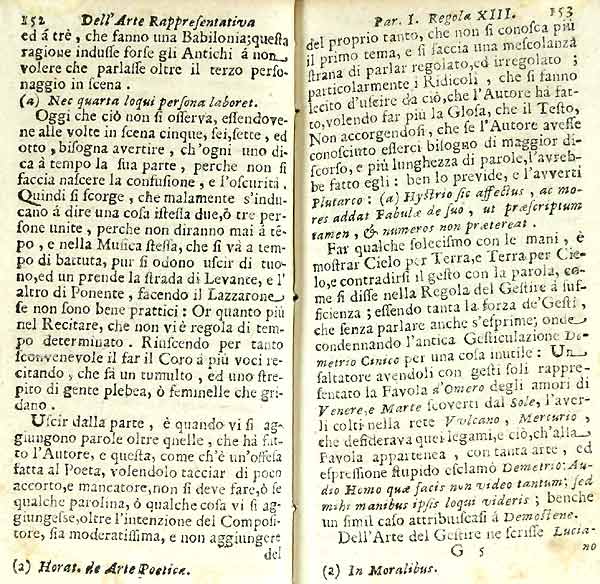 152 Dell'Arte Rappresentativa
ed á trè, che fanno una Babilonia; questa
ragione indusse forse gli Antichi á non
volere che parlasse oltre il terzo perso-
naggio in scena.
(a) Nec quarta loqui persona laboret.
Oggi che ciò non si osserva, essendove-
ne alle volte in scena cinque, sei, sette, ed
otto, bisogna avertire, ch'ogni uno di-
ca á tempo la sua parte, perche non si
faccia nascere la confusione, e l'oscuritá.
Quindi si scorge, che malamente s'indu-
cano á dire una cosa istessa due, ò tre per-
sone unite, perche non diranno mai á tē-
po, e nella Musica stessa, che si và a tem-
po di battuta, pur si odono uscir di tuo-
no, ed un prende la strada di Levante, e l'
altro di Ponente, facendo il Lazzarone
se non sono bene prattici: Or quanto più
nel Recitare, che non vi è regola di tem-
po determinato. Riuscendo per tanto
sconvenevole il far il Coro á più voci re-
citando, che fà un tumulto, ed uno stre-
pito di gente plebea, ò feminelle che gri-
dano.
Uscir dalla parte, è quando vi si ag-
giungono parole oltre quelle, che hà fat-
to l'Autore, e questa, come ch'è un'offesa
fatta al Poeta, volendolo tacciar di poco
accorto, e mancatore, non si deve fare, ò se
qualche parolina, ò qualche cosa vi si
aggiungesse, oltre l'intenzione del Composi-
tore, sia moderatissima, e non aggiungere
del
(a) Horat. de Arte Poetica.
Par. I. Regola XIII. 153
del proprio tanto, che non si conosca più
il primo tema, e si faccia una mescolanza
strana di parlar regolato, ed irregolato;
particolarmente i Ridicoli, che si fanno
lecito d'uscire da ciò, che l'Autore hà fat-
to, volendo far più la Glosa, che il Testo,
Non accorgendosi, che se l'Autore avesse
conosciuto esserci bisogno di maggior di-
scorso, e più lunghezza di parole, l'avreb-
be fatto egli: ben lo previde, e l'avvertì
Plutarco: (a) Hystrio sic affectus, ac mo-
res addat Fabulæ de suo, ut præscriptum
tamen, & numeros non prætereat.
Far qualche solecismo con le mani, è
mostrar Cielo per Terra, e Terra per Cie-
lo, e contradirsi il gesto con la parola, co-
me si disse nella Regola del Gestire á suf-
ficienza; essendo tanta la forza de' Gesti,
che senza parlare anche s'esprime; onde
condennando l'antica Gesticulazione De-
metrio Cinico per una cosa inutile: Un
saltatore avendoli con gesti soli rappre-
sentato la Favola d'Omero degli amori di
Venere, e Marte scoverti dal Sole, l'aver-
li colti nella rete Vulcano, Mercurio,
che desiderava quei legami, e ciò, ch'alla
Favola appartenea, con tanta arte, ed
espressione stupido esclamò Demetrio: Au-
dio Homo quæ facis non video tantum; sed
mihi manibus ipsis loqui videris; benche
un simil caso attribuiscasi á Demostene.
Dell'Arte del Gestire ne scrisse Lucia-
G 5 no
(a) In Moralibus.